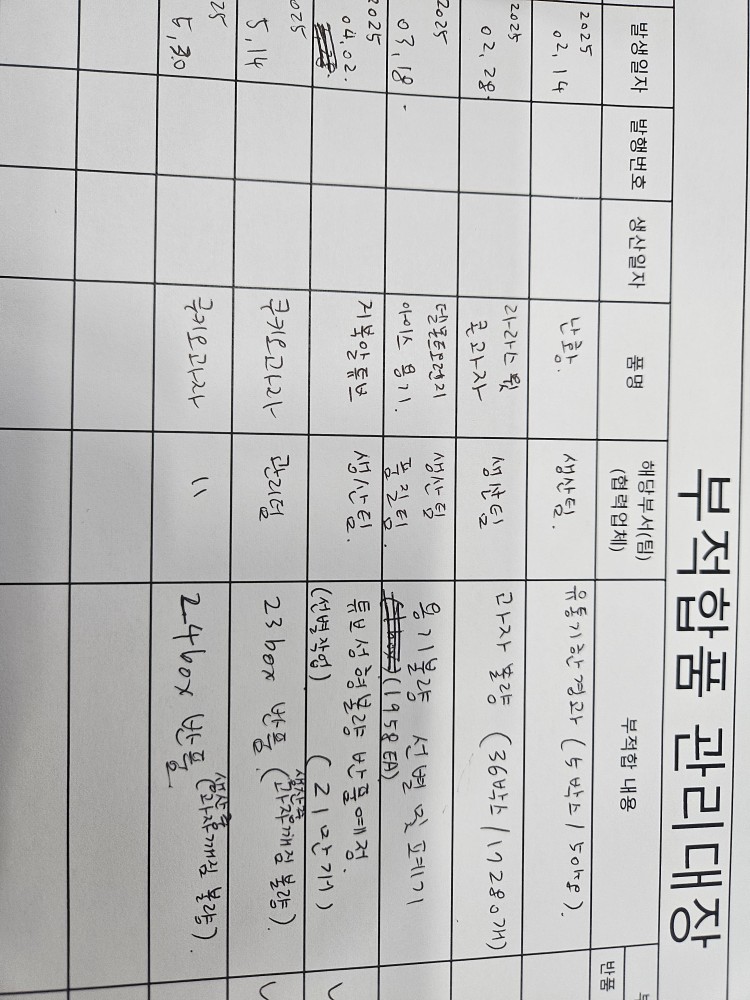 부적합품 관리대장
발생일자 발행번호 생산일자 품명 해당부서(팀) 부적합 내용
(협력업체) 반품
2025
02, 14 난황. 생산팀. 유통기한 경과 (5박스/50kg).
2025
02, 28. 생산팀 과자 불량 (36박스/17280개)
콘과자
2025
03, 18. 생산팀 용기불량 선별 및 폐기
아이스 용기. 품질팀. (1958EA)
2025
04, 02. 생산팀. 튜브성형불량 반품예정.
(선별작업) (21만개)
025
5, 14 쿠키오과자 관리팀 23box 반품 (과자깨짐 불량).
생산후
25
5, 30 쿠키오과자 〃 24box 반품 (과자깨짐 불량).
생산후